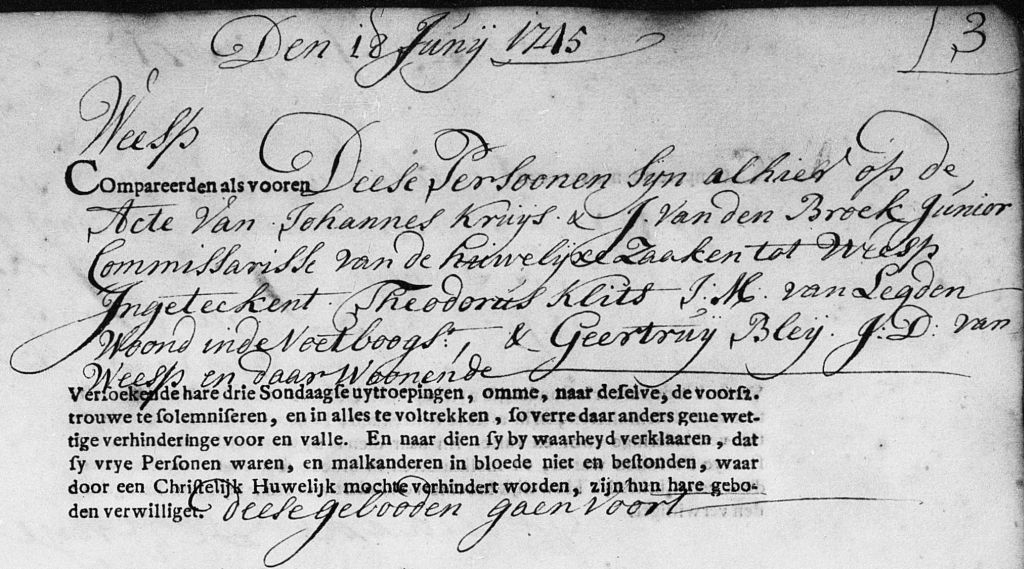 Den 18 Junij 1745
3
Weesp
Compareerden als vooren Deese Persoonen Syn alhier op de
Acte van Johannes Kruijs & J. van den Broek Junior
Commissarisse van de huwelijxe Zaaken tot Weesp
Ingeteekent Theodorus Klits J:M. van Legden
Woond inde Voetboogst, & Geertruij Bleij. J:D: van
Weesp en daar Woonende
Versoekende hare drie Sondaagse uytroepingen, omme, naar deselve, de voorsz.
trouwe te solemniseren, en in alles te voltrekken, so verre daar anders gene wet-
tige verhinderinge voor en valle. En naar dien sy by waarheyd verklaaren, dat
sy vrye Personen waren, en malkanderen in bloede niet en bestonden, waar
door een Christelijk Huwelijk mochte verhindert worden, zijn hun hare gebo-
den verwilliget. Deese gebooden gaen voort